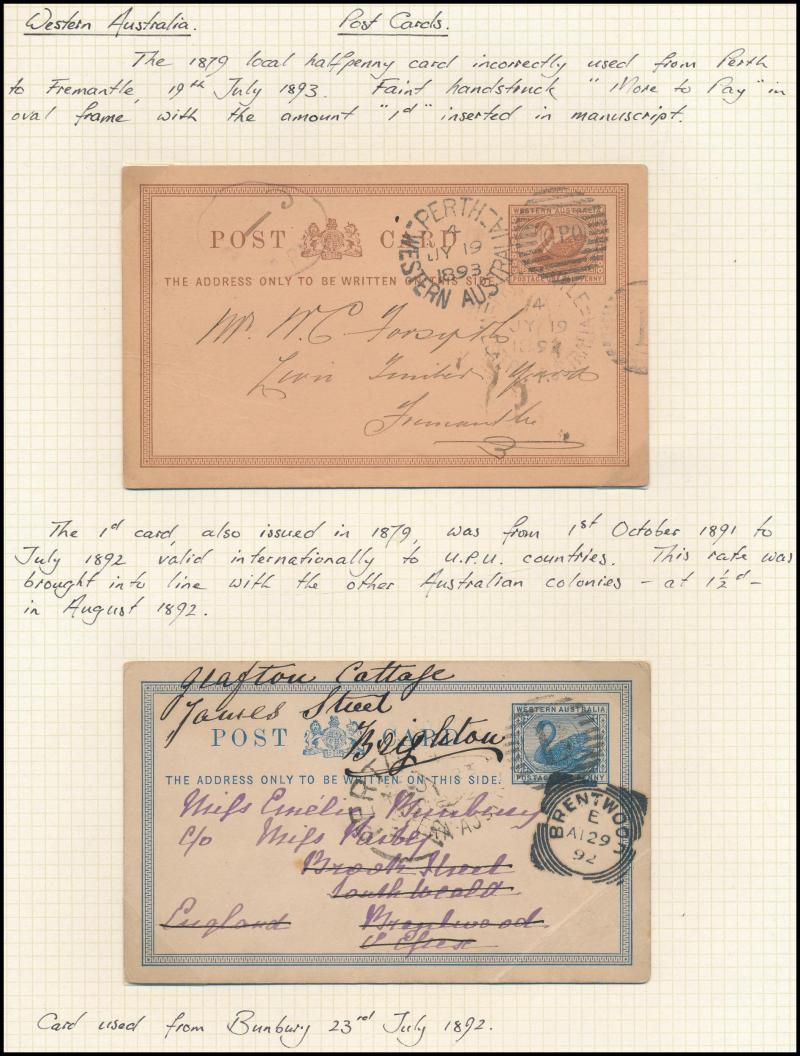 Western Australia. Post Cards.
The 1879 local halfpenny card incorrectly used from Perth
to Fremantle, 19th July 1893. Faint handstruck "More to Pay" in
oval frame with the amount "1d" inserted in manuscript.
POST CARD
WESTERN AUSTRALIA
GPO
POSTAGE HALF PENNY
THE ADDRESS ONLY TO BE WRITTEN ON THIS SIDE
PERTH
4
JY 19
1893
WESTERN AUSTRALIA
4
JY 19
Mr. W. C. Forsyth
Lion Timber Yard
Fremantle
The 1d card, also issued in 1879, was from 1st October 1891 to
July 1892 valid internationally to U.P.U. countries. This rate was
brought into line with the other Australian colonies - at 1½d -
in August 1892.
Grafton Cottage
James Street
Brighton
POST CARD
WESTERN AUSTRALIA
POSTAGE ONE PENNY
THE ADDRESS ONLY TO BE WRITTEN ON THIS SIDE.
Miss Emélie Bunbury
c/o Miss
Brook Street
South Weald
England Brentwood
Essex
BRENTWOOD
E
AU 29
92
Card used from Bunbury 23rd July 1892.